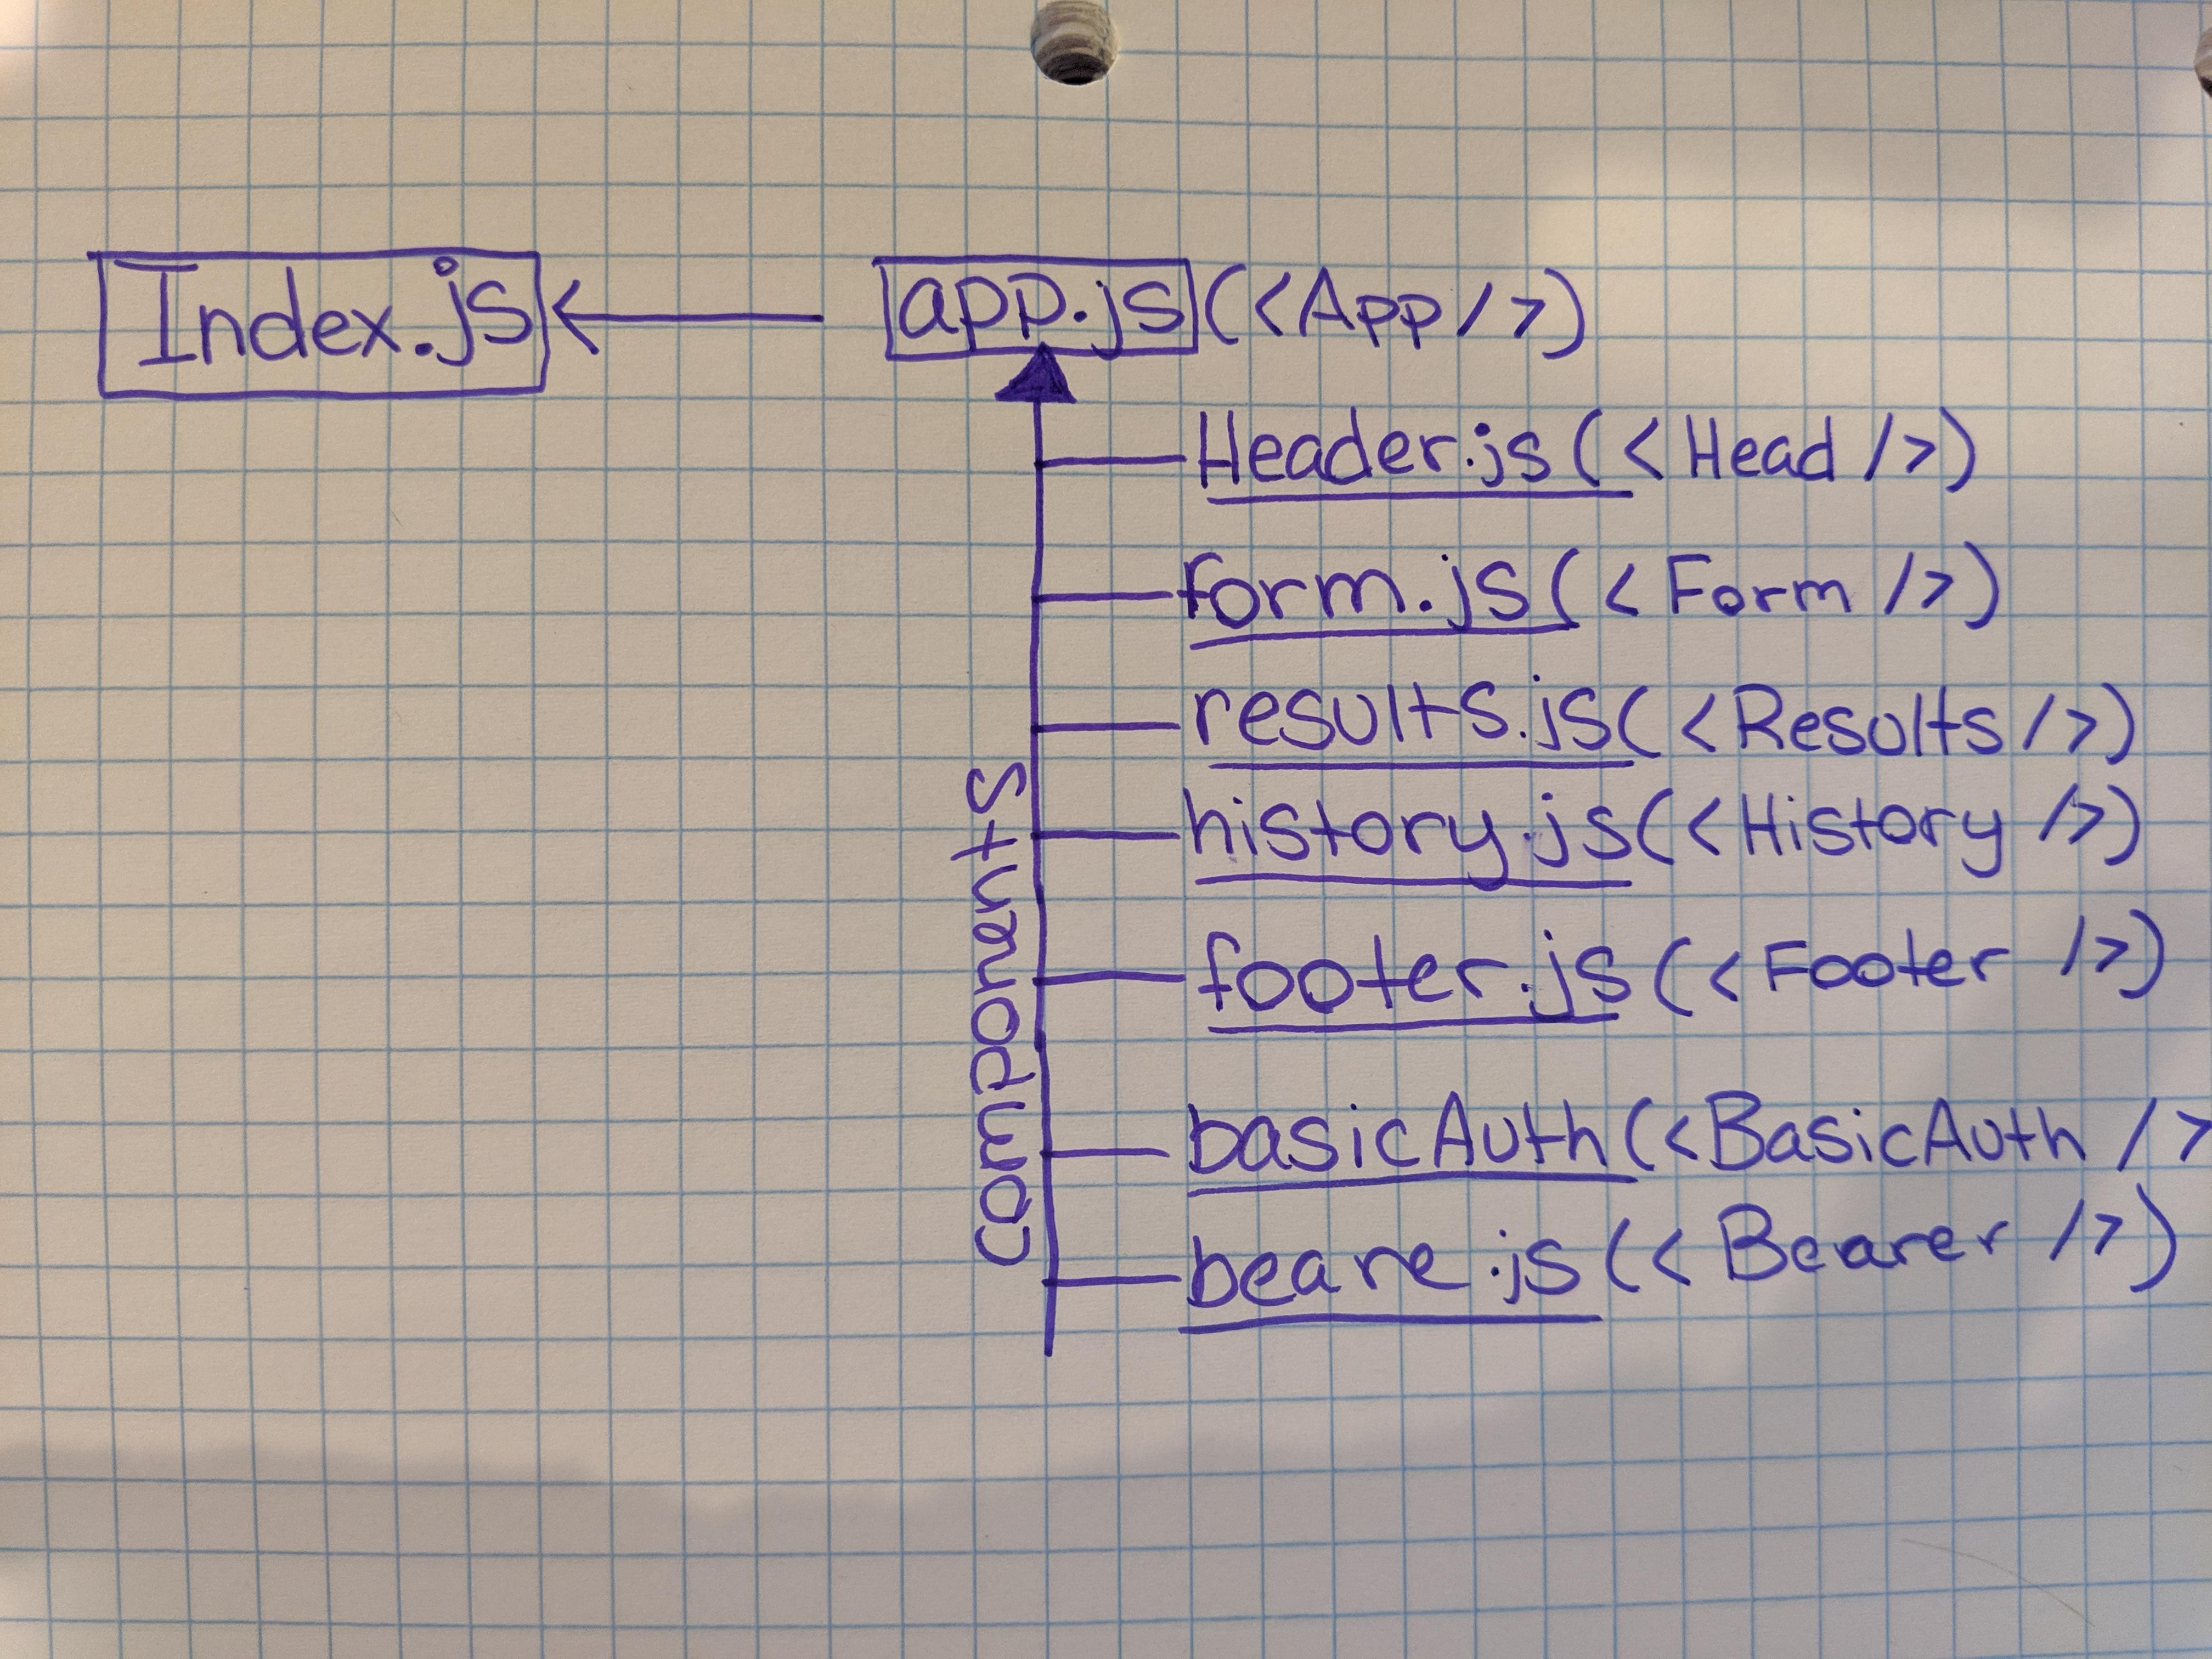 Index.js
app.js (<App/>)
components
Header.js (<Head/>)
form.js (<Form/>)
results.js (<Results/>)
history.js (<History/>)
footer.js (<Footer />)
basicAuth (<BasicAuth />
beare.js (<Bearer />)